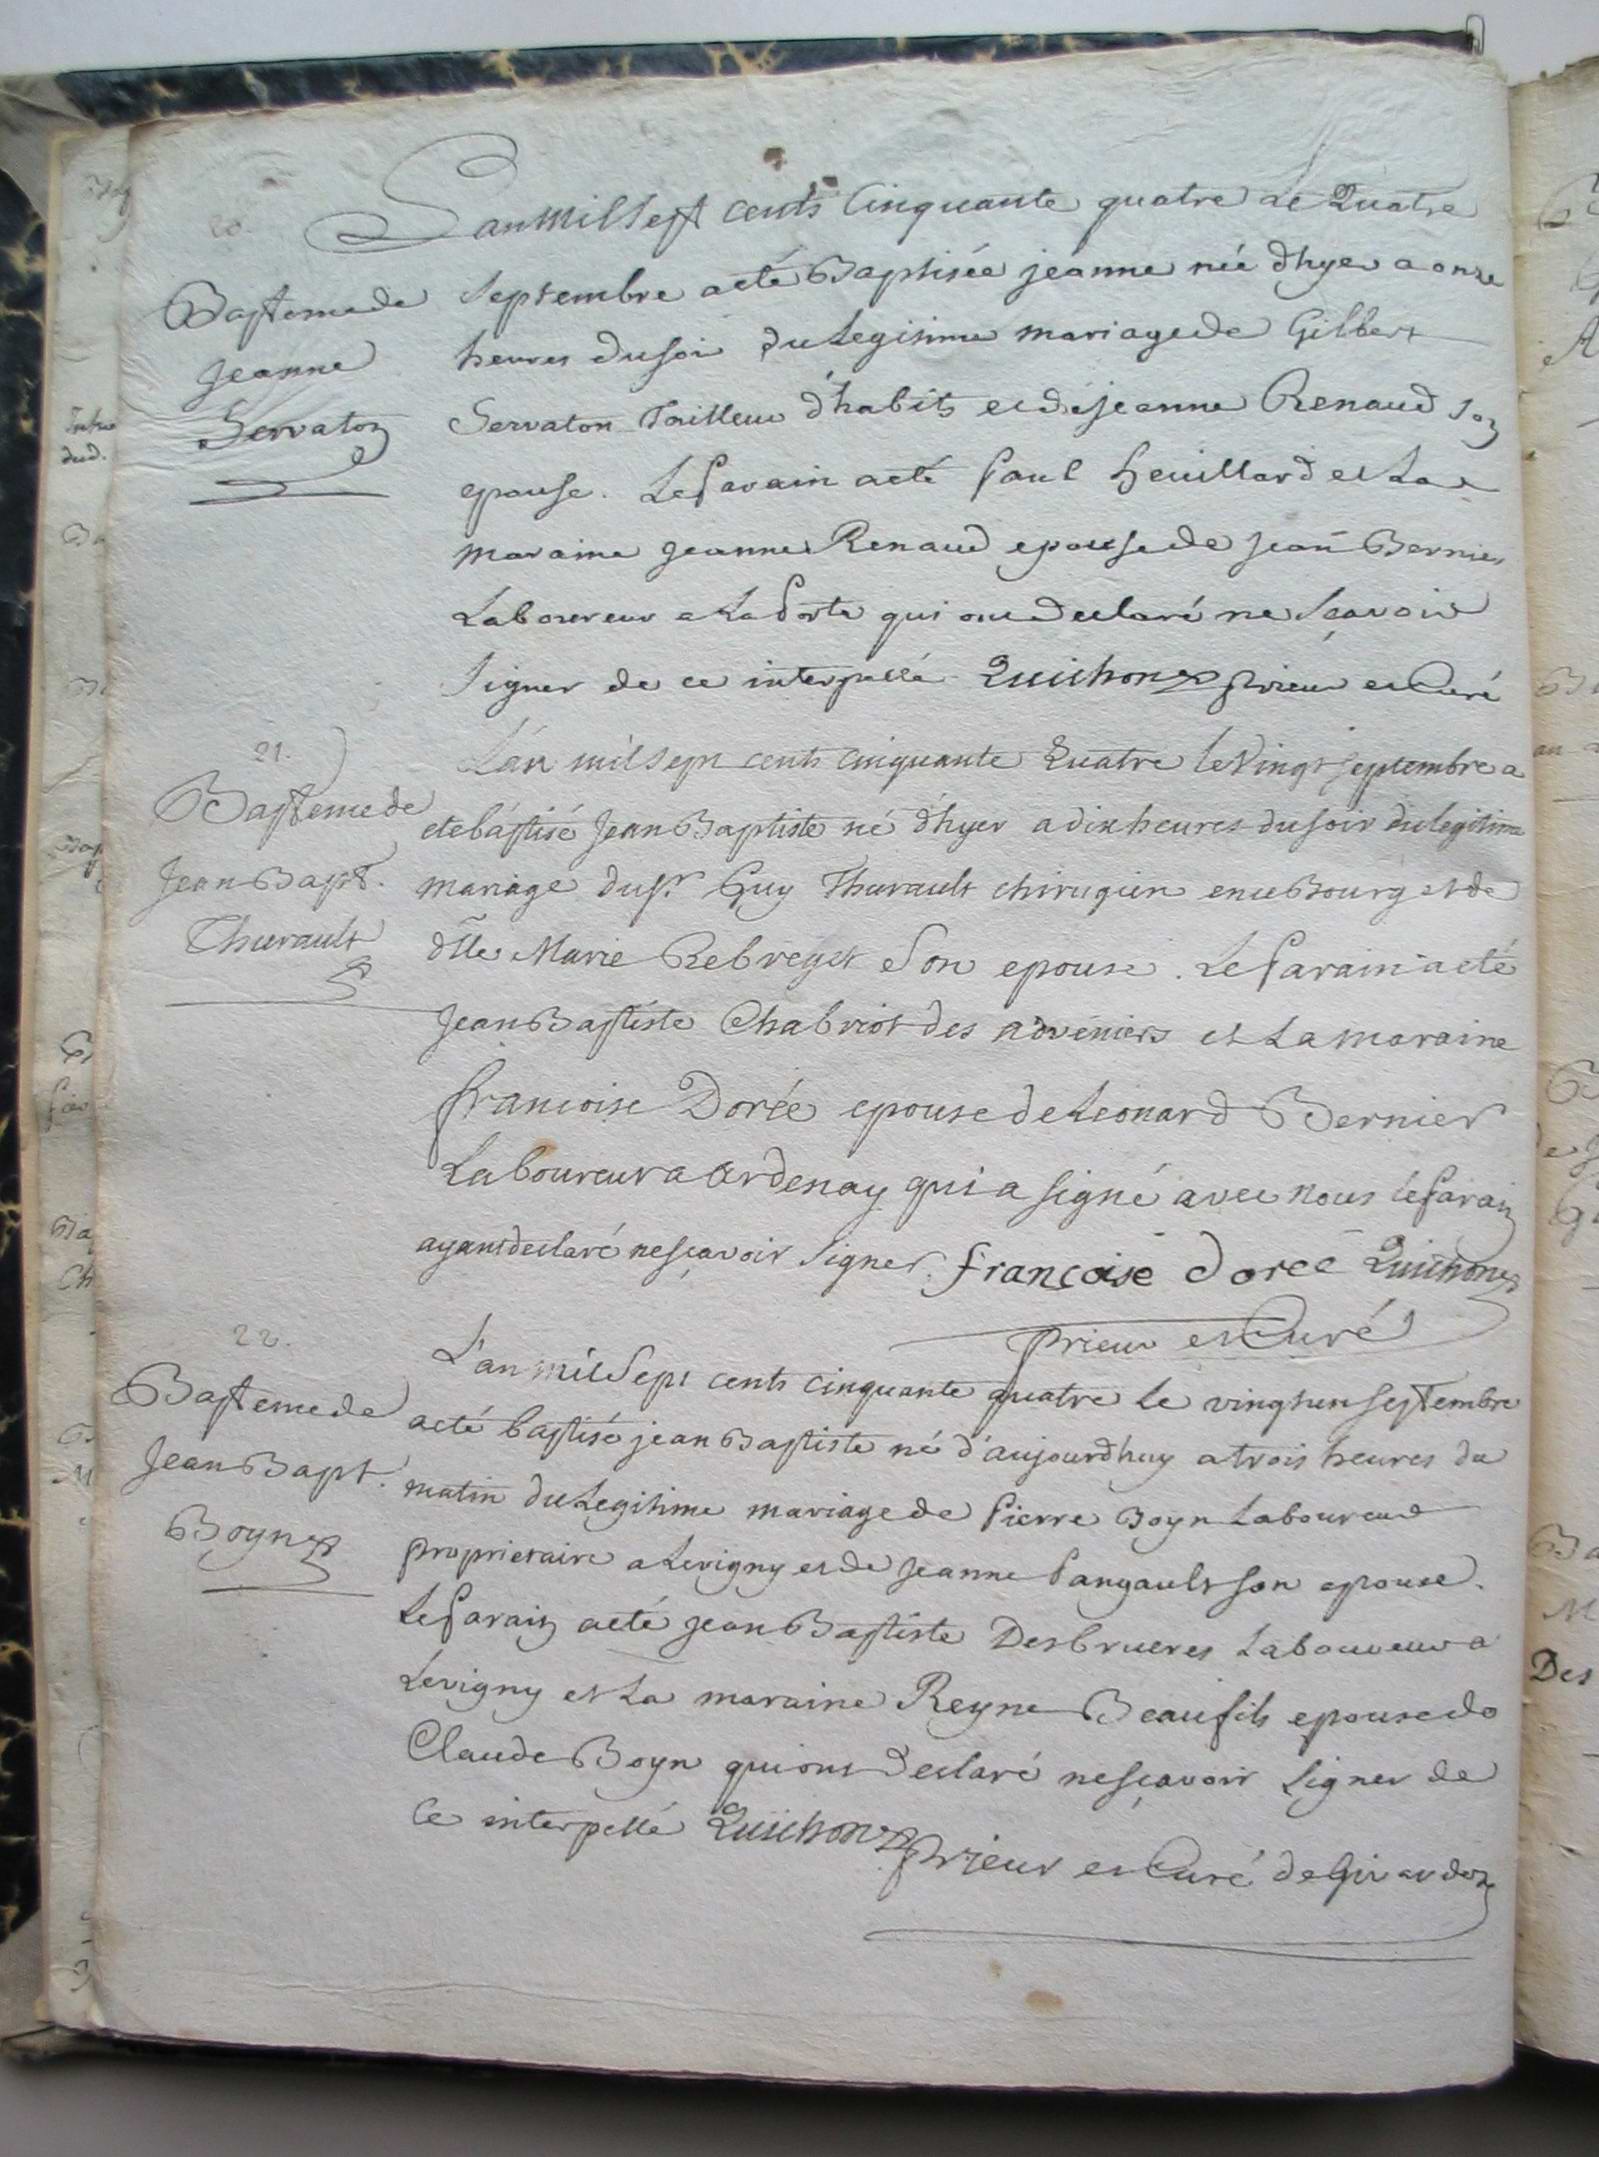 20.
L'an mil sept cents Cinquante quatre Le Quatre
Baptemede
Jeanne
Servaton
septembre aeté Baptisée jeanne née d'hyer a onze
heures dusoir du Legitime mariagede Gilbert
Servaton Tailleur d'habits et de jeanne Renaud son
epouse. Le Parain aeté Paul heuillard et La
maraine Jeanne Renaud epousede Jean Bernier
Laboureur a La Porte qui ont Declaré ne sçavoir
signer de ce interpellé Quichon prieur et Curé
21.
Baptemede
Jean Bapt.
Thurault
L'an mil sept cents cinquante Quatre le Vingt septembre a
eté báptisé Jean Baptiste né d'hyer a dix heures du soir du legitime
mariage du sr. Guy Thurault chirugien en ce Bourg et de
dlle Marie Rebreget son epouse. Le Parain aeté
Jean Baptiste Chabriot des et La maraine
francoise Dorée epouse de Leonard Bernier
Laboureur a Ardenay qui a signé avec nous le Parain
ayant declaré ne sçavoir signer. françoise doreé Quichon
prieur et Curé
22.
Baptemede
Jean Bapt.
Boyn
L'an mil sept cents cinquante quatre Le vingt un septembre
aeté baptisé jean Baptiste né d'aujourdhuy a trois heures du
matin du Legitime mariage de Pierre Boyn Laboureur
proprietaire a Levigny et de Jeanne Pangault son epouse.
Le Parain aeté Jean Baptiste Desbrueres Laboureur a
Levigny et La maraine Reyne Beaufils epouse de
Claude Boyn qui ont Declaré ne sçavoir signer de
ce interpellé Quichon prieur et Curé de Givardon